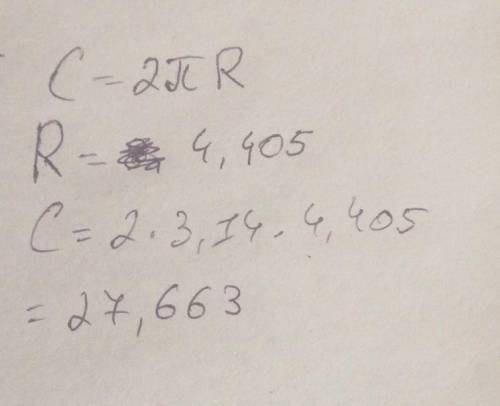 C = 2πR
R = 4,405
C = 2 · 3,14 · 4,405
= 27,663